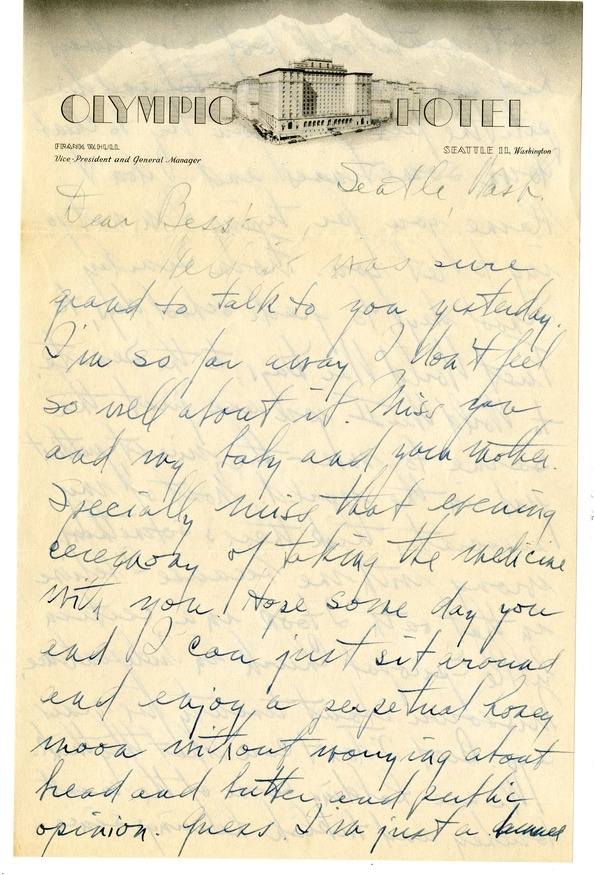 OLYMPIC HOTEL
FRANK W. HULL
Vice-President and General Manager
SEATTLE 11, Washington
Seattle, Wash.
Dear Bess:
was sure
grand to talk to you yesterday.
I'm so far away I don't feel
so well about it. Miss you
and my baby and your mother.
Specially miss that evening
ceremony of taking the medicine
with you. Hope some day you
and I can just sit around
and enjoy a perpetual honey
moon without worrying about
bread and butter and public
opinion. Guess I'm just a